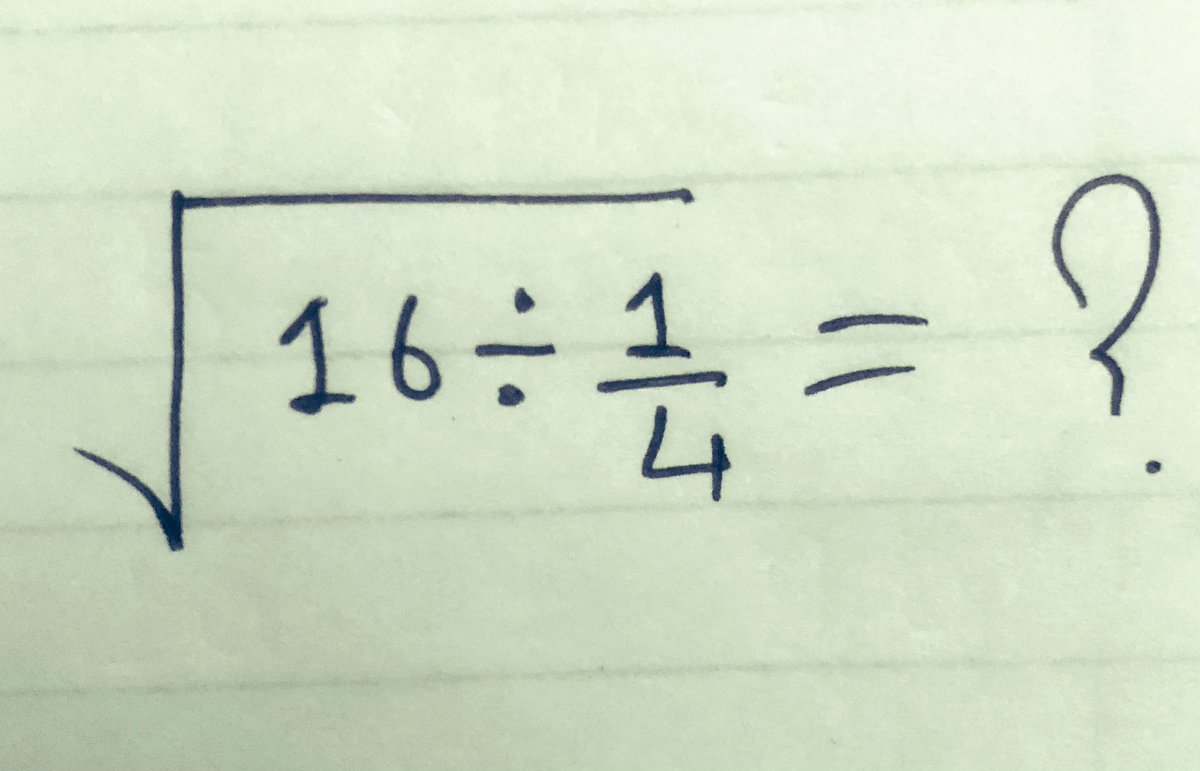 √16÷1/4 = ?